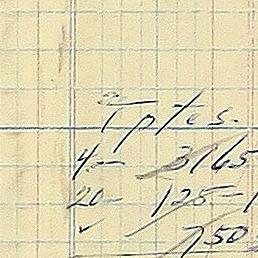 2
Tptes.
4.— 3165
20— 125—
✓ 750